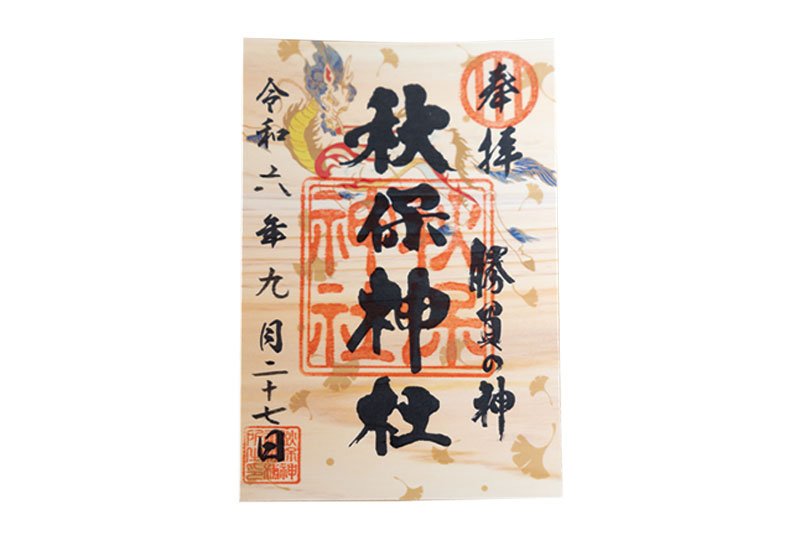 奉拝
勝負の神
秋保神社
令和六年九月二十七日
秋保神社